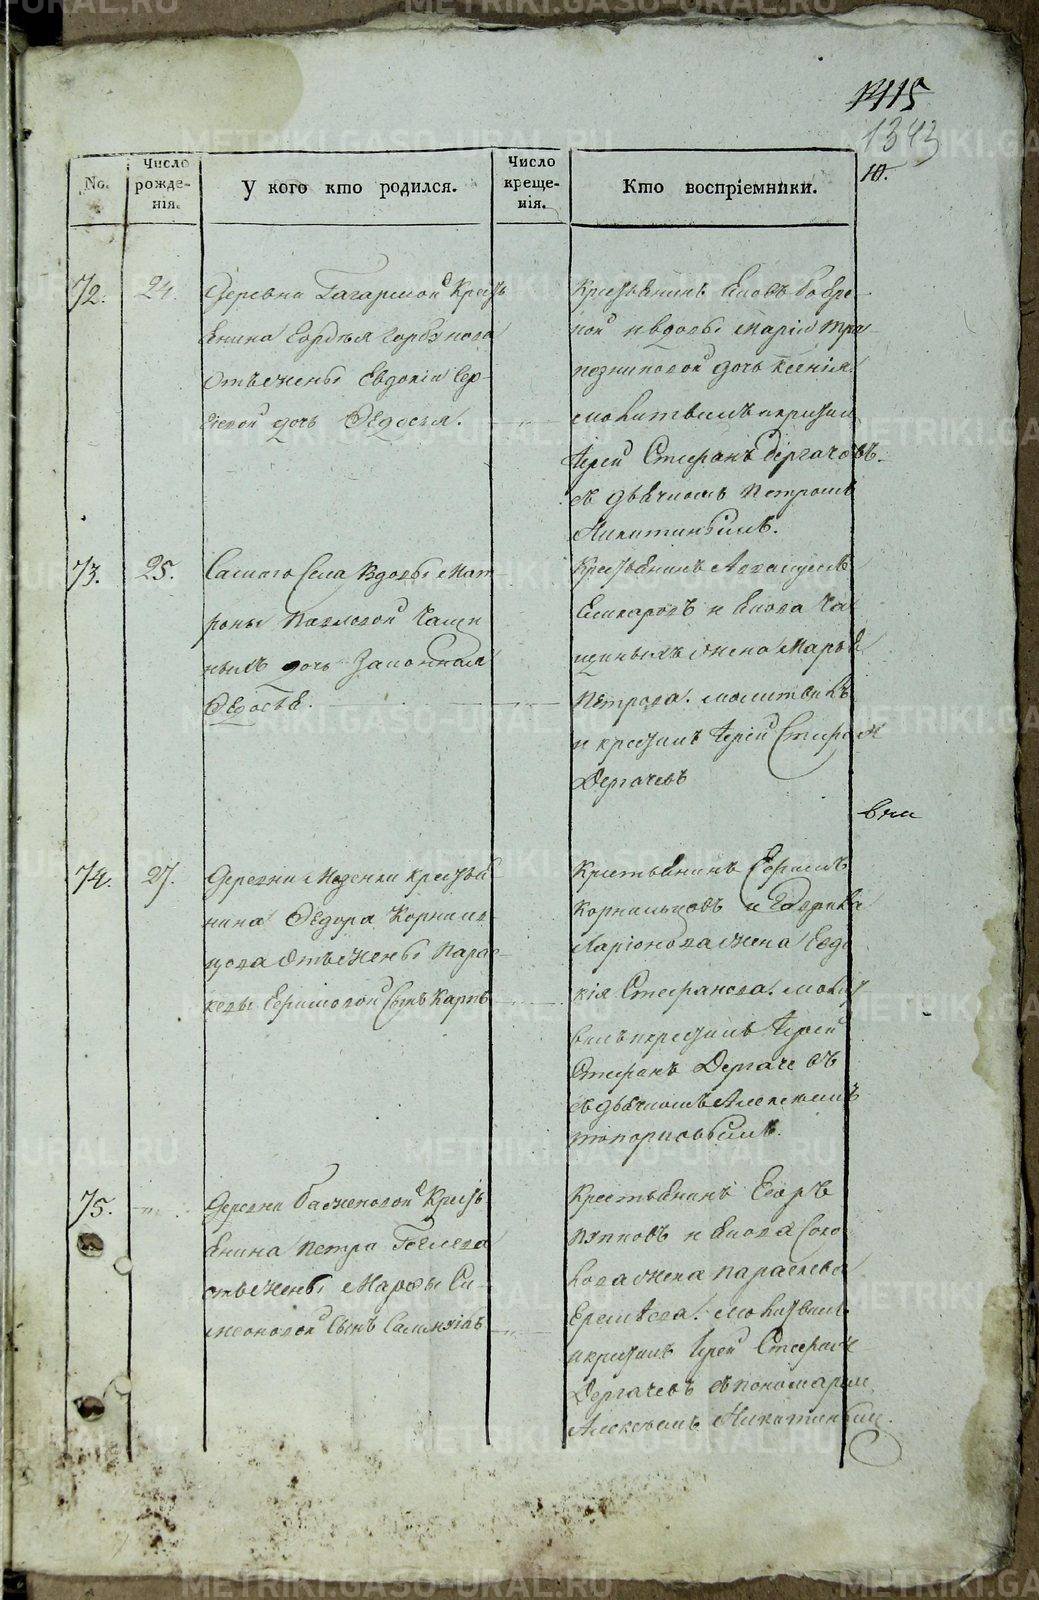 1415
1343
10.
No.
Число рожде-нія.
У кого кто родился.
Число креще-нія.
Кто воспріемники.
72.
24.
Деревни Гагарской Кресть
янина
отъ жены Евдокіи Сер-
гіевой дочь Ѳедосья.
Крестьянинъ
ной и вдовы Маріи Тра
позниковой дочь Ксенія.
молитвилъ и крестилъ
Іерей Стефанъ Дергачовъ
съ дьячкомъ Петромъ
Никитинымъ.
73.
25.
Самаго Села Вдовы Мат
роны Павловой Чащи
ныхъ дочь Законная
Ѳедосья.
Крестьянинъ
и Якова Ча
щиныхъ жена Марья
Петрова. молитвилъ
и крестилъ Іерей Стефанъ
Дергачевъ
74.
27.
Деревни Мезенки крестья
нина Ѳедора Корниль
цова отъ жены Парас-
кевы Ефимовой сынъ Карпъ
Крестьянинъ Ефимъ
Корнильцовъ и Гаврила
Ларіонова жена Евдо
кія Стефанова. молит
вилъ и крестилъ Іерей
Стефанъ Дергачевъ
съ дьячкомъ Алексеемъ
Топорковымъ.
75.
"
Деревни Баженовой Кресть
янина Петра
отъ жены Марфы Си
меоновой сынъ
Крестьянинъ Егоръ
и Якова Соко
лова жена Параскева
Еремѣева. молитвилъ
и крестилъ Іерей Стефанъ
Дергачевъ съ пономаремъ
Алексѣемъ Никитинымъ.
METRIKI.GASO-URAL.RU